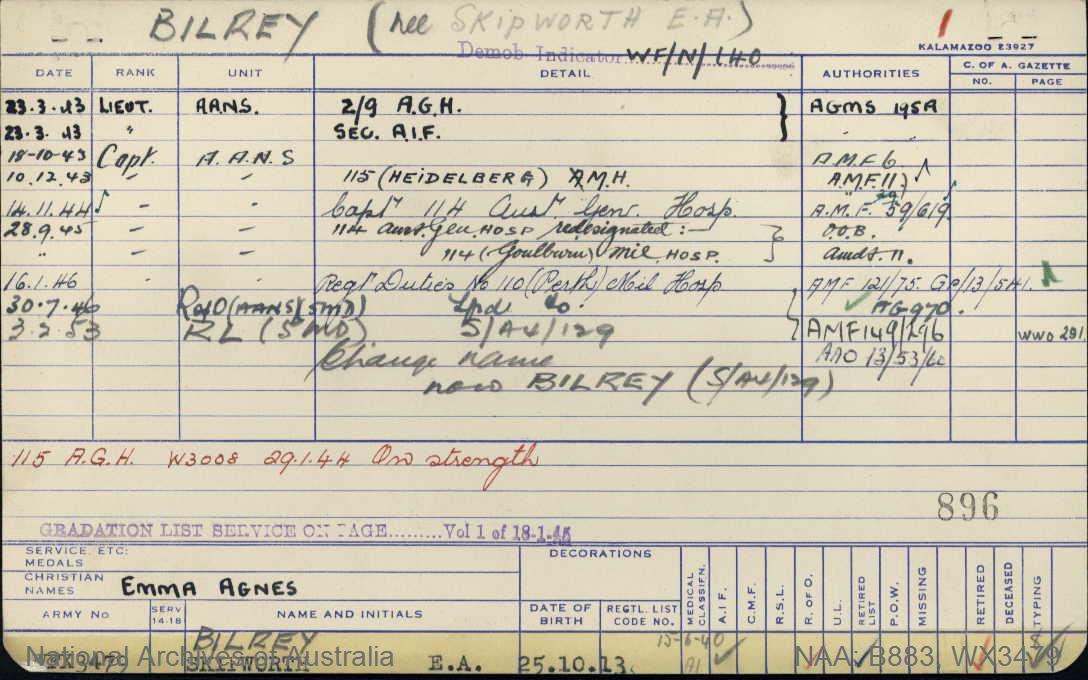 BILREY (nee SKIPWORTH E.A.)
Demob Indicator WF/N/140
KALAMAZOO 23927
DATE RANK UNIT DETAIL AUTHORITIES C. OF A. GAZETTE
NO. PAGE
23.3.43 LIEUT. AANS. 2/9 A.G.H. } AGMS 195A
23.3.43 " SEC. A.I.F. " "
18-10-43 Capt. A.A.N.S A.M.F 6
10.12.43 " " 115 (HEIDELBERG) A.M.H. A.M.F. 11)
14.11.44 " " Capt 114 Aust. Gen. Hosp. A.M.F. 59/619
28.9.45 " " 114 Aust. Gen. HOSP redesignated :— } O.O.B.
" 114 (Goulburn) Mil. HOSP. Amdt. 11.
16.1.46 " " Regtl Duties No 110 (Perth) Mil Hosp AMF 121/75.
30.7.46 RofO (AANS)(5MD) Tpd to. AG 970.
3.2.53 RL (5 MD) S/A4/129 AMF149/296 WWO 291.
Change name
now BILREY (S/A4/129)
115 A.G.H. W3008 29.1.44 On strength
896
GRADATION LIST SERVICE ON PAGE.........Vol 1 of 18-1-45
SERVICE, ETC: MEDALS DECORATIONS
CHRISTIAN NAMES EMMA AGNES
ARMY No SERV 14-18 NAME AND INITIALS DATE OF BIRTH REGTL. LIST CODE NO. MEDICAL CLASSIFN. A.I.F. C.M.F. R.S.L. R. OF O. U.L. RETIRED LIST P.O.W. MISSING RETIRED DECEASED TYPING
BILREY 15-6-40
WX3479 SKIPWORTH E.A. 25.10.13. A1
National Archives of Australia NAA: B883, WX3479